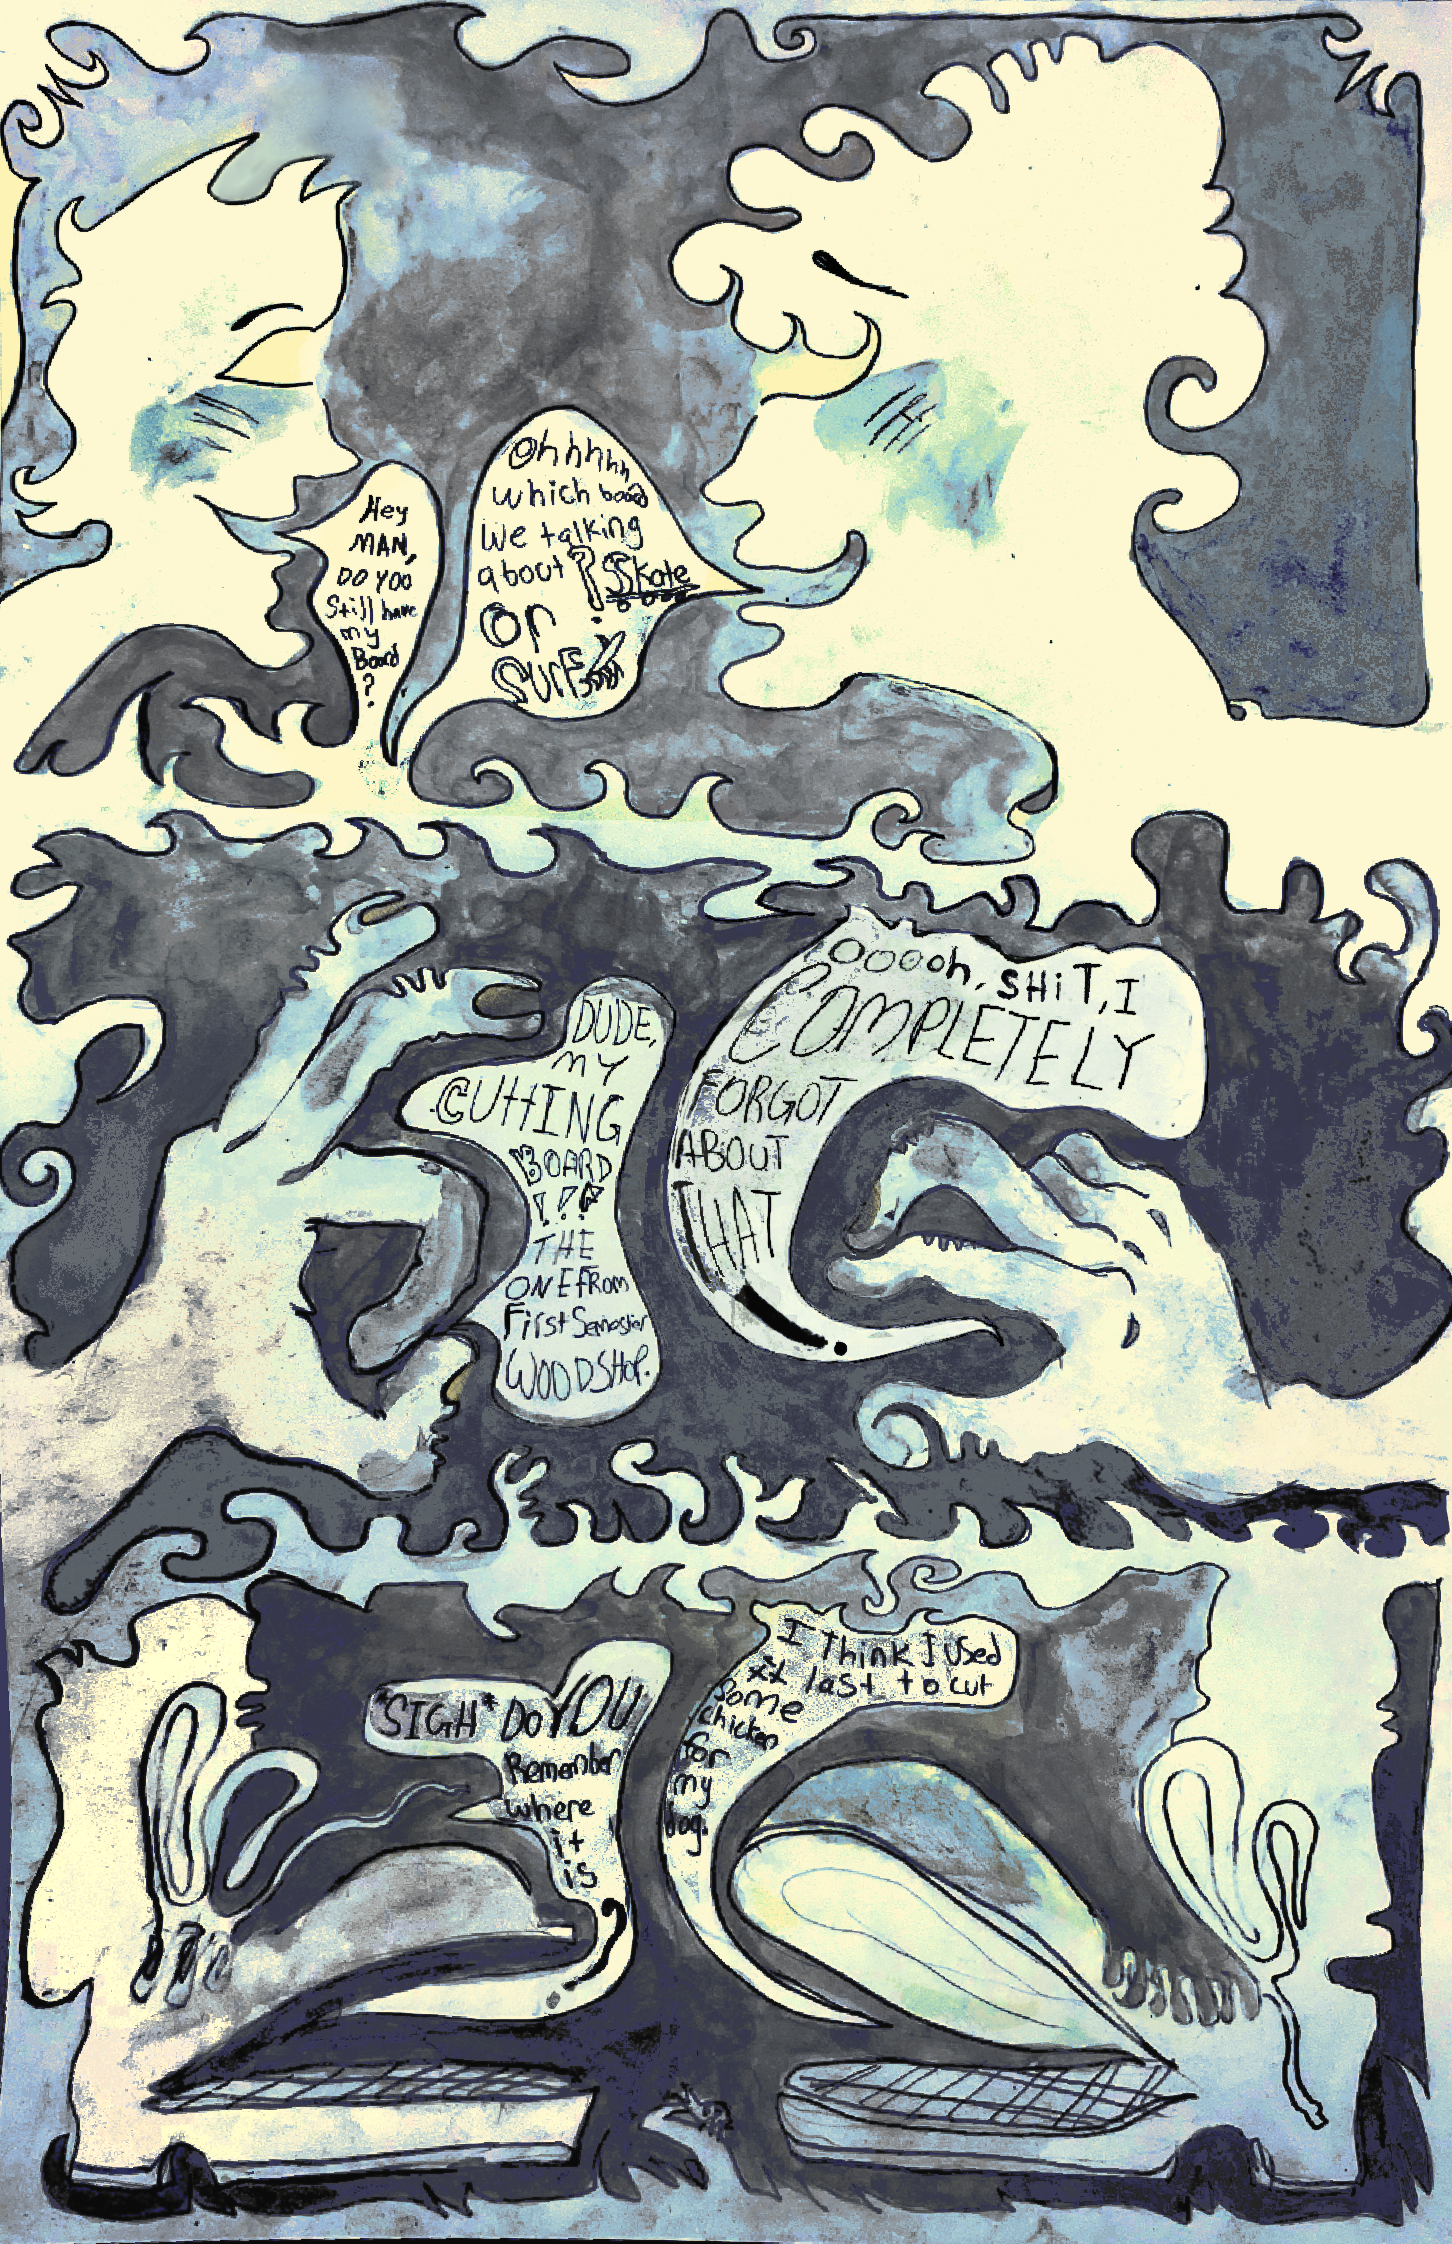 Hey
MAN,
DO YOU
Still have
my
Board
?
Ohhhhh
which board
We talking
about? SSkate
or
SURF
DUDE,
MY
CUTTING
BOARD
!!?
THE
ONE FROM
First Semester
WOODSHOP.
OOOOh, SHiT, I
COMPLETELY
FORGOT
ABOUT
THAT
!
*SIGH* DO YOU
Remember
where
it
is
?
I Think I Used
it last to cut
some
chicken
for
my
dog.